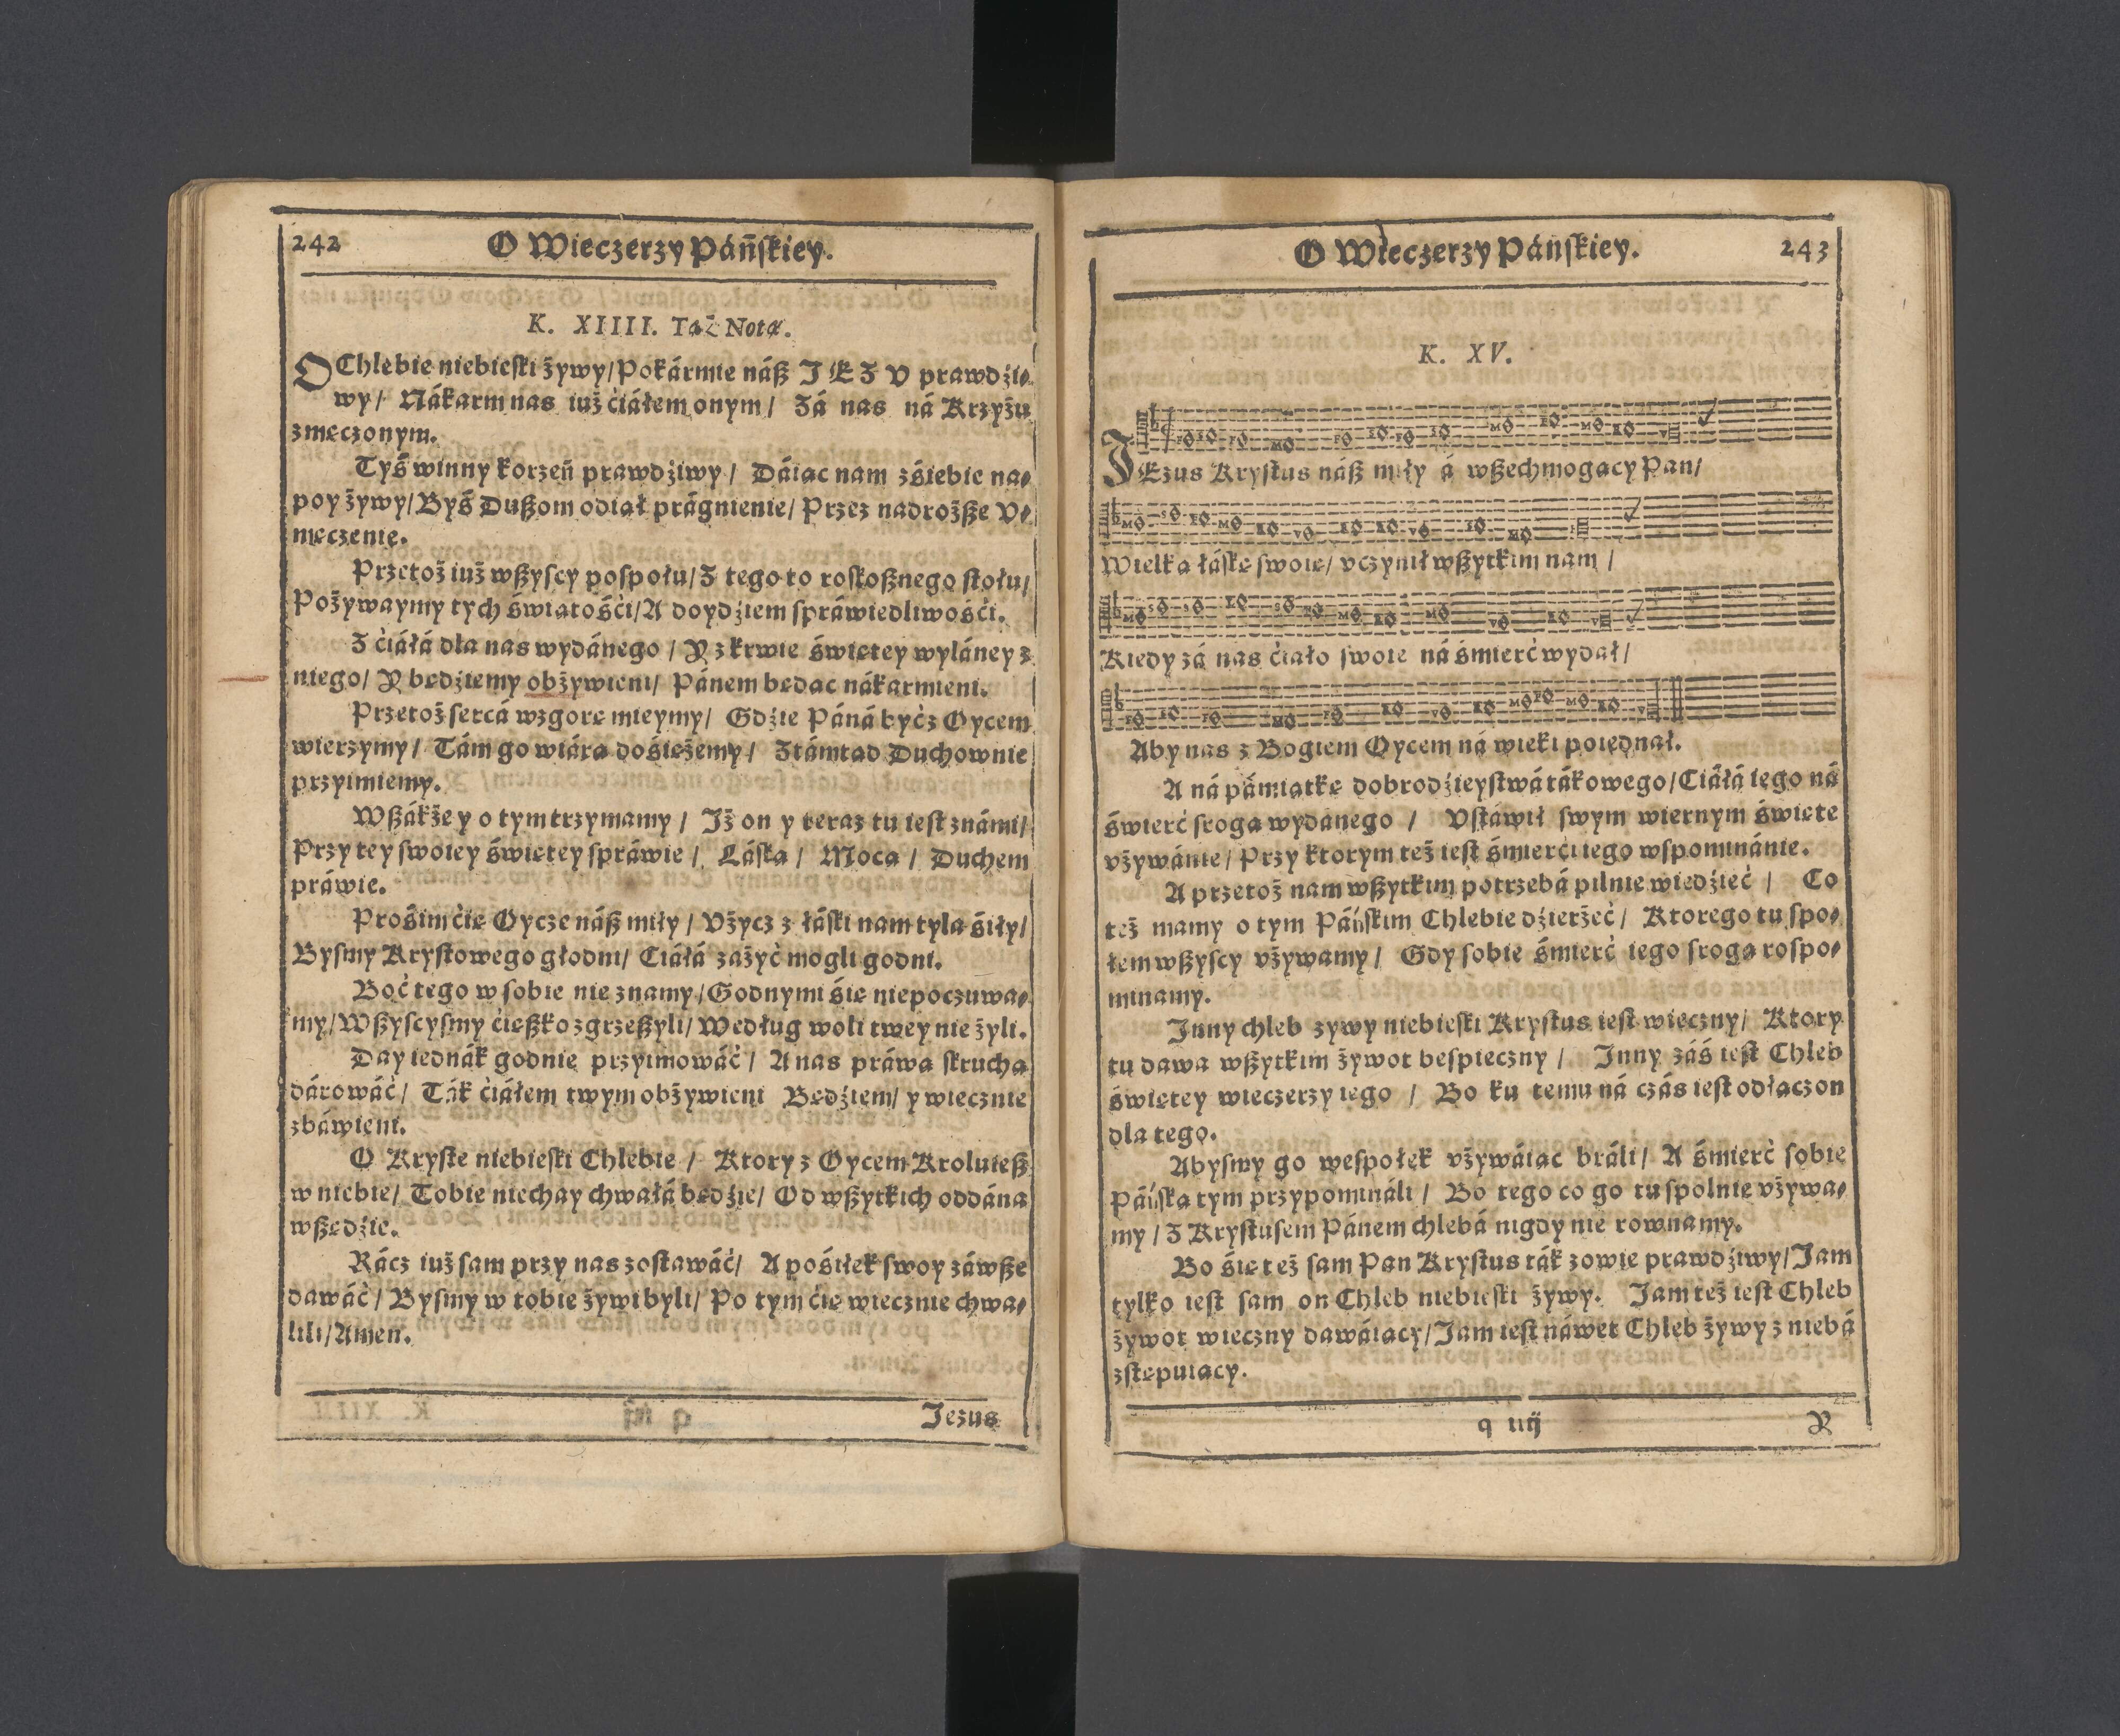 242 O Wieczerzy Páńſkiey.
K. XIIII. Taż Nota.
O Chlebie niebieſki żywy/ Pokármie náß JEZV prawdźi⸗
wy/ Nákarm nas iuż ćiáłem onym/ Zá nas ná Krzyżu
zmęczonym.
Tyś winny korzeń prawdźiwy/ Dáiąc nam z śiebie na⸗
poy żywy/ Byś Dußom odiął prágnienie/ Przez nadroższe V⸗
męczenie.
Przetoż iuż wßyſcy poſpołu/ Z tego to roſkoßnego ſtołu/
Pożywaymy tych świątośći/ A doydźiem ſpráwiedliwośći.
Z ćiáłá dla nas wydánego/ Y z krwie świętey wyláney z
niego/ Y będźiemy obżywieni/ Pánem będąc nákarmieni.
Przetoż ſercá wzgorę mieymy/ Gdźie Páná być z Oycem
wierzymy/ Tám go wiárą dośiężemy/ Ztámtąd Duchownie
przyimiemy.
Wßákże y o tym trzymamy/ Iż on y teraz tu ieſt z námi/
Przy tey ſwoiey świętey ſpráwie/ Láſką/ Mocą/ Duchem
práwie.
Prośim ćię Oycze náß miły/ Vżycz z łáſki nam tyla śiły/
Byſmy Kryſtowego głodni/ Ciáłá záżyć mogli godni.
Boć tego w ſobie nie znamy/ Godnymi śię niepoczuwa⸗
my/ Wßyſcyſmy ćięßko zgrzeßyli/ Według woli twey nie żyli.
Day iednák godnie przyimowáć/ A nas práwą ſkruchą
dárowáć/ Ták ćiáłem twym obżywieni Będźiem/ y wiecznie
zbáwieni.
O Kryſte niebieſki Chlebie/ Ktory z Oycem Kroluieß
w niebie/ Tobie niechay chwałá będźie/ Od wßytkich oddána
wßędźie.
Rácz iuż ſam przy nas zoſtawáć/ A pośiłek ſwoy záwße
dawáć/ Byſmy w tobie żywi byli/ Po tym ćię wiecznie chwa⸗
lili/ Amen.
Jezus
O Wieczerzy Páńſkiey. 243
K. XV.
JEzus Kryſtus náß miły á wßechmogący Pan/
Wielką łáſkę ſwoię/ vczynił wßytkim nam/
Kiedy zá nas ćiáło ſwoie ná śmierć wydał/
Aby nas z Bogiem Oycem ná wieki poiednał.
A ná pámiątkę dobrodźieyſtwá tákowego/ Ciáłá iego ná
świerć ſrogą wydánego/ Vſtáwił ſwym wiernym święte
vżywánie/ Przy ktorym też ieſt śmierći iego wſpominánie.
A przetoż nam wßytkim potrzebá pilnie wiedźieć/ Co
też mamy o tym Páńſkim Chlebie dźierżeć/ Ktorego tu ſpo⸗
łem wßyſcy vżywamy/ Gdy ſobie śmierć iego ſrogą roſpo⸗
minamy.
Inny chleb żywy niebieſki Kryſtus ieſt wieczny/ Ktory
tu dawa wßytkim żywot beſpieczny/ Inny záś ieſt Chleb
świętey wieczerzy iego/ Bo ku temu ná czás ieſt odłączon
dla tego.
Abyſmy go weſpołek vżywáiąc bráli/ A śmierć ſobie
Páńſką tym przypomináli/ Bo tego co go tu ſpolnie vżywa⸗
my/ Z Kryſtuſem Pánem chlebá nigdy nie rownamy.
Bo śię też ſam Pan Kryſtus ták zowie prawdźiwy/ Jam
tylko ieſt ſam on Chleb niebieſki żywy. Jam też ieſt Chleb
żywot wieczny dawáiący/ Jam ieſt náwet Chleb żywy z niebá
zſtępuiący.
q iiij Y